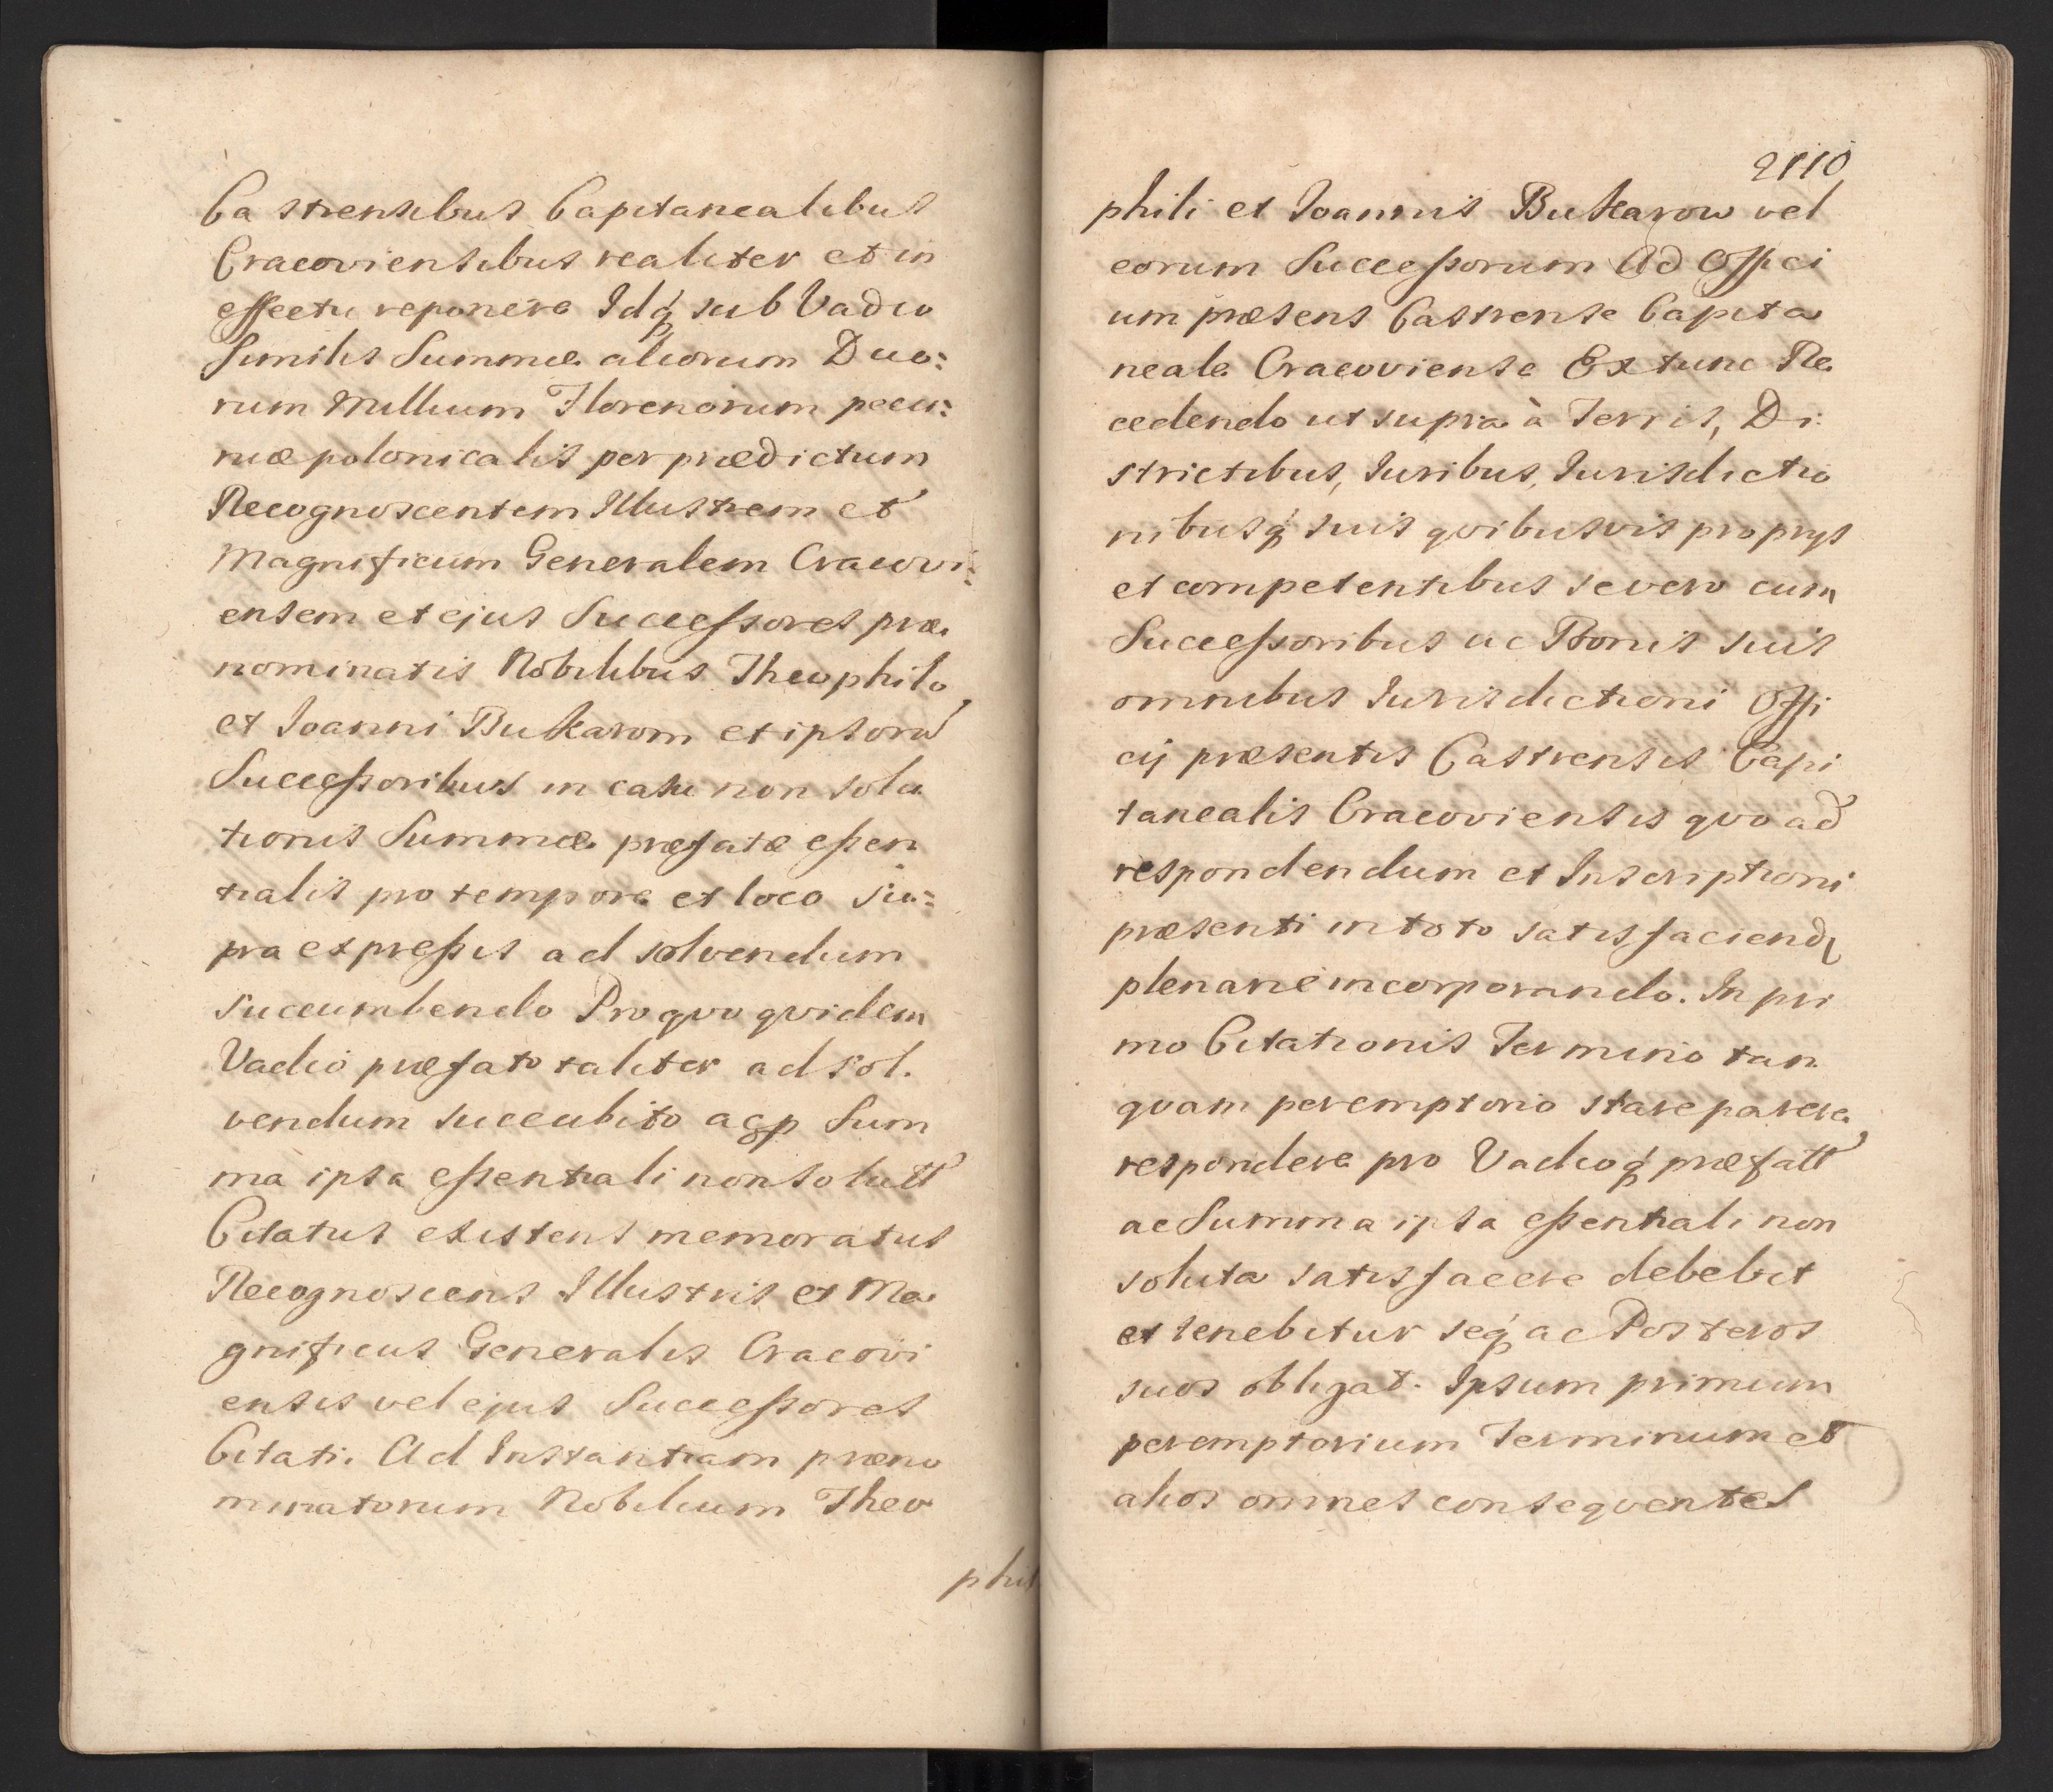 Castrensibus Capitanealibus
Cracoviensibus realiter et in
effectu reponere Idq́ sub Vadio
Similis Summæ aliorum Duo:
rum Millium Florenorum pecu:
niæ polonicalis per prædictum
Recognoscentem Illustrem et
Magnificum Generalem Cracovi:
ensem et ejus Successores præ
nominatis Nobilibus Theophilo
et Joanni Bukarom et ipsorū
Successoribus in casu non solu
tionis Summæ præfatæ essen
tialis pro tempore et loco su:
pra expressis ad solvendum
succumbendo Pro quo quidem
Vadio præfato taliter ad sol.
vendum succubito acp Sum
ma ipsa essentiali non solutt
Citatus existens memoratus
Recognoscens Illustris et Ma
gnificus Generalis Cracovi
ensis vel ejus Successores
Citati. Ad Instantiam præno
minatorum Nobilium Theo
phili
2110
phili et Joannis Bukarow vel
eorum Successorum Ad Offici
um præsens Castrense Capita
neale Cracoviense Ex tunc Re
cedendo ut supra à Terris, Di:
strictibus, Juribus, Jurisdictio
nibusq́ suis qvibusvis proprys
et competentibus se vero cum
Successoribus ac Bonis suis
omnibus Jurisdictioni Offi
cij præsentis Castrensis Capi
tanealis Cracoviensis qvo ad
respondendum et Inscriptioni
præsenti in toto satisfaciend
plenarie incorporando. In pri
mo Citationis Termino tan
qvam peremptorio stare parere
respondere pro Vadioq́ præfatt
ac Summa ipsa essentiali non
soluta satisfacere debebit
et tenebitur seq́ ac Posteros
suos obligat. Ipsum primum
peremptorium Terminum et
alios omnes conseqventes